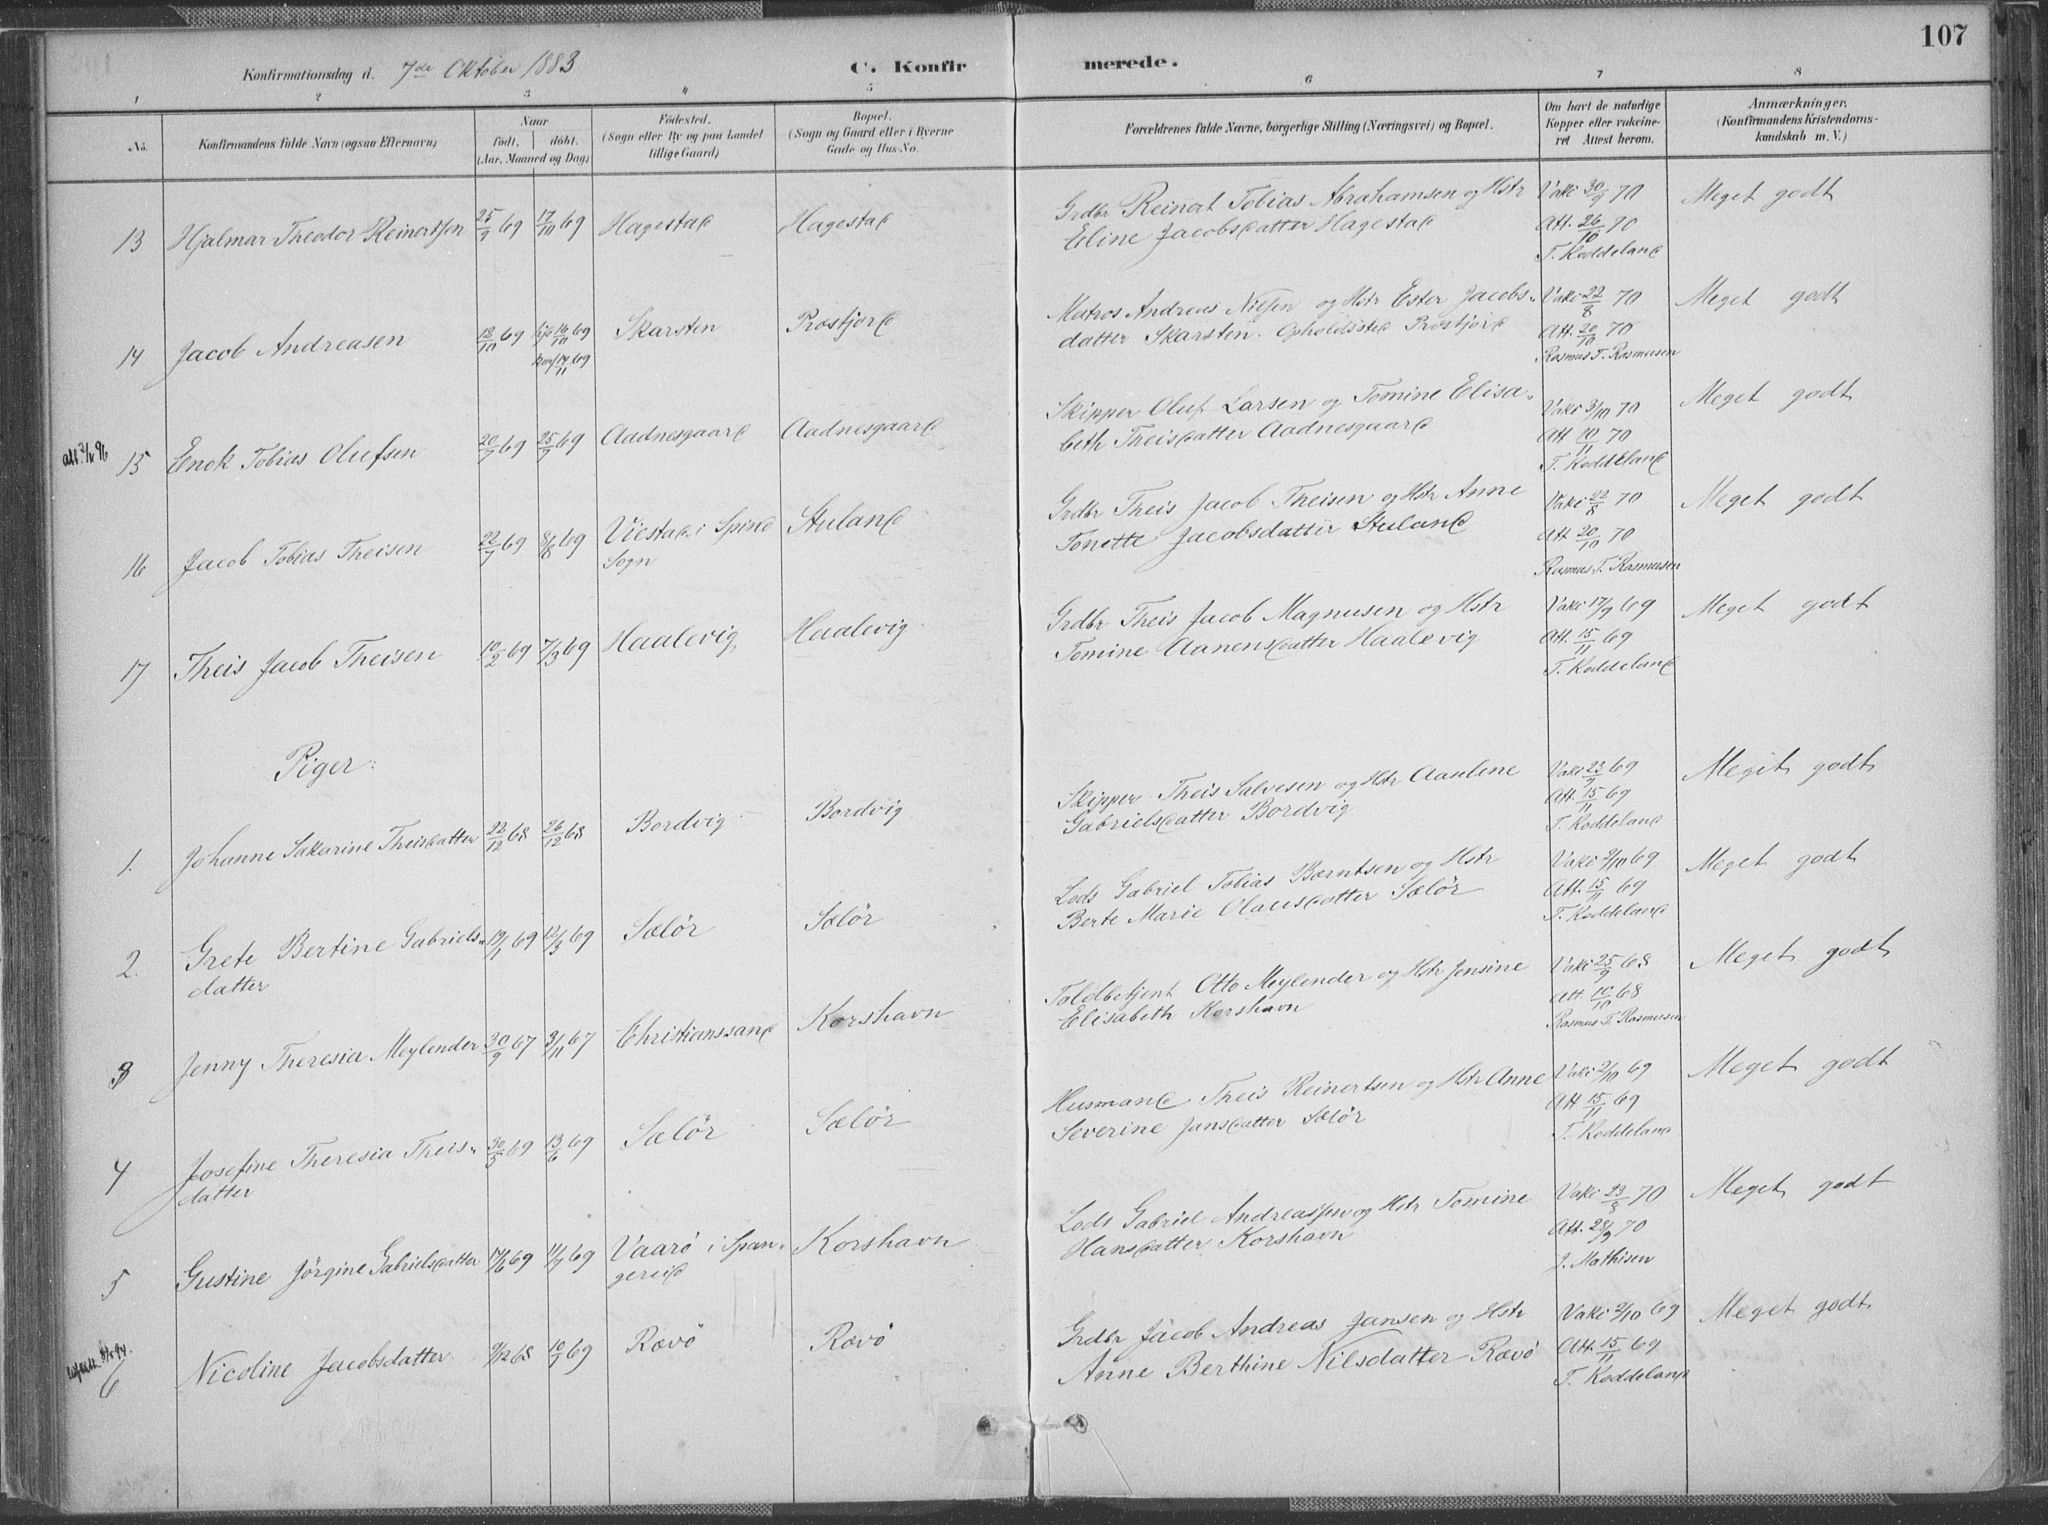 107
Konfirmationsdag d. 7de Oktober 1883
C. Konfirmerede.
1 2 3 4 5 6 7 8
No. Konfirmandens fulde Navn (ogsaa Efternavn) Naar født, døbt. (Aar, Maaned og Dag) Fødested. (Sogn eller By og paa Landet tillige Gaard) Bopæl. (Sogn og Gaard eller i Byerne Gade og Hus-No. Forældrenes fulde Navne, borgerlige Stilling (Næringsvei) og Bopæl. Om havt de naturlige Kopper eller vaccineret Attest herom. Anmærkninger, (Konfirmandens Kristendomskundskab m. V.)
13 Hjalmar Theodor Reinertsen 25/9 69 17/10 69 Hagestad Hagestad Grdbr Reinert Tobias Abrahamsen og Hstr Vakc 30/9 70 Meget godt
Eline Jacobsdatter Hagestad Att. 26/10 70
T. Koddeland
14 Jacob Andreasen 12/10 69 hjd 16/10 69 Skarsten Prestjord Matros Andreas Nilsen og Hstr Ester Jacobs- Vakc 22/8 70 Meget godt
konf 14/11 69 datter Skarsten. Opholdssted Prestjord Att. 20/10 70
Rasmus T. Rasmusen
15 Enok Tobias Olufsen 20/7 69 25/7 69 Aadnesgaard Aadnesgaard Skipper Oluf Larsen og Tomine Elisa- Vakc 3/10 70 Meget godt
beth Theisdatter Aadnesgaard Att 10/11 70
T. Koddeland
16 Jacob Tobias Theisen 22/7 69 8/8 69 Viestad i Spind Stuland Grdbr Theis Jacob Theisen og Hstr Anne Vakc 22/8 70 Meget godt
Sogn Tonette Jacobsdatter Stuland Att 20/10 70
Rasmus T. Rasmusen
17 Theis Jacob Theisen 10/2 69 7/3 69 Haalevig Haalevig Grdbr Theis Jacob Magnusen og Hstr Vakc 17/9 69 Meget godt
Tomine Aanensdatter Haalevig Att. 15/11 69
T. Koddeland
Piger.
1. Johanne Sakarine Theisdatter 22/12 68 26/12 68 Bordvig Bordvig Skipper Theis Salvesen og Hstr Aanlene Vakc 23/9 69 Meget godt
Gabrielsdatter Bordvig Att. 15/11 69
T. Koddeland
2. Grete Bertine Gabriels- 19/1 69 12/3 69 Sælör Sælör Lods Gabriel Tobias Berntsen og Hstr Vakc 2/10 69 Meget godt
datter Berte Marie Olausdatter Sælör Att. 15/11 69
T. Koddeland
3 Jenny Theresia Meylender 30/9 67 3/11 67 Christianssand Korshavn Toldbetjent Otto Meylender og Hstr Jensine Vakc 25/9 68 Meget godt
Elisabeth Korshavn Att. 10/10 68
Rasmus T. Rasmusen
4 Josefine Theresia Theis- 30/5 69 13/6 69 Sælör Sælör Husmand Theis Reinertsen og Hstr Anne Vakc 2/10 69 Meget godt
datter Severine Jansdatter Sælör Att 15/11 69
T. Koddeland
5 Gustine Jörgine Gabrielsdatter 17/6 69 11/7 69 Vaarö i Span- Korshavn Lods Gabriel Andreassen og Hstr Tomine Vakc 23/8 70 Meget godt
gereid Hansdatter Korshavn Att. 28/9 70
J. Mathisen
6 Nicoline Jacobsdatter 9/12 68 10/7 69 Rævö Rævö Grdbr Jacob Andreas Jansen og Hstr Vakc 2/10 69 Meget godt
Anne Berthine Nilsdatter Rævö Att. 15/11 69
T. Koddeland